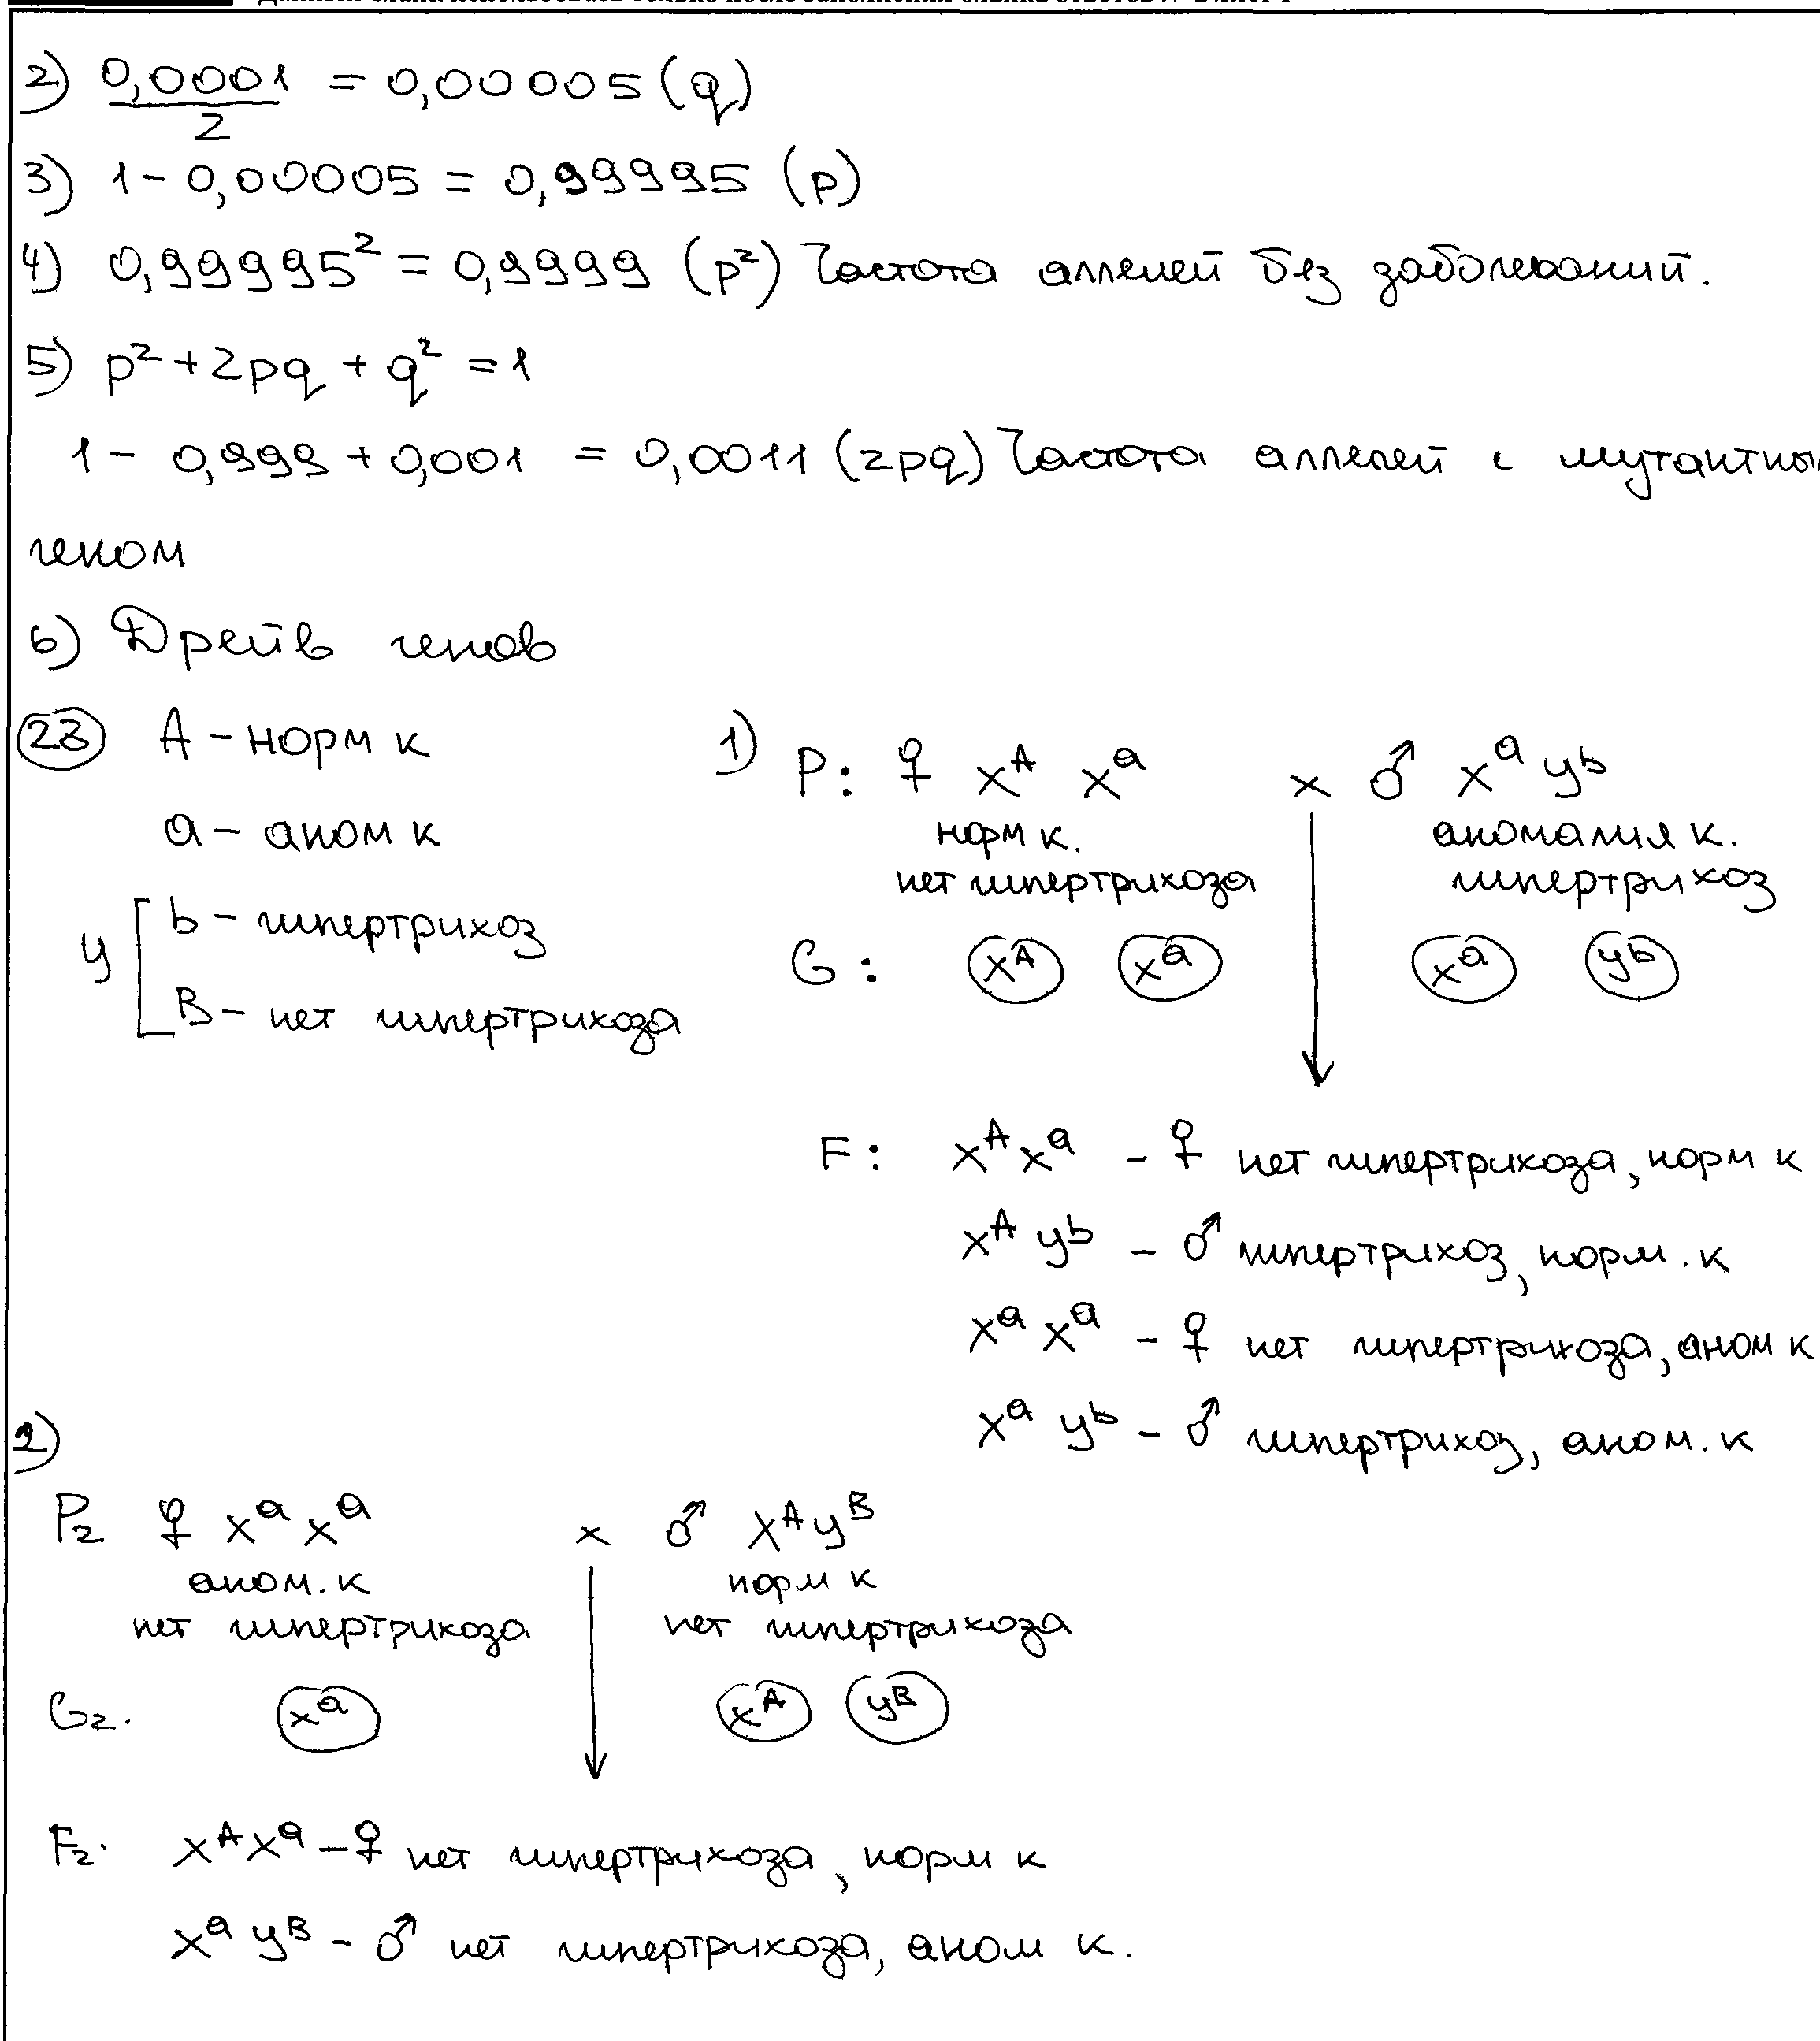 2) 0,0001/2 = 0,00005 (q)
3) 1 - 0,00005 = 0,99995 (p)
4) 0,99995² = 0,9999 (p²) Частота аллелей без заболеваний.
5) p² + 2pq + q² = 1
1 - 0,999 + 0,001 = 0,0011 (2pq) Частота аллелей с мутантны
геном
6) Дрейв генов
28 A - норм к
a - аном к
y [ b - гипертрихоз
B - нет гипертрихоза
1) P: ♀ X^A X^a × ♂ X^a y^b
норм к. аномалия к.
нет гипертрихоза гипертрихоз
G: X^A X^a X^a y^b
F: X^A X^a - ♀ нет гипертрихоза, норм к
X^A y^b - ♂ гипертрихоз, норм. к
X^a X^a - ♀ нет гипертрихоза, аном к
X^a y^b - ♂ гипертрихоз, аном. к
2)
P2 ♀ X^a X^a × ♂ X^A y^B
аном. к норм к
нет гипертрихоза нет гипертрихоза
G2. X^a X^A y^B
F2. X^A X^a - ♀ нет гипертрихоза, норм к
X^a y^B - ♂ нет гипертрихоза, аном к.